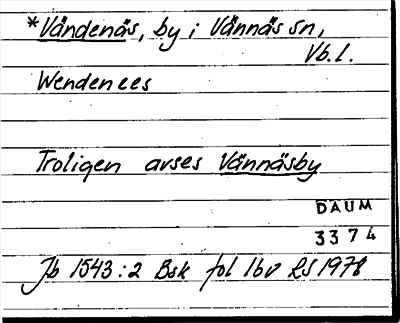 *Vändenäs, by i Vännäs sn,
Vb.l.
Wendenees
Troligen avses Vännäsby
DAUM
3374
Jb 1543:2 Bsk fol 16v LS 1978